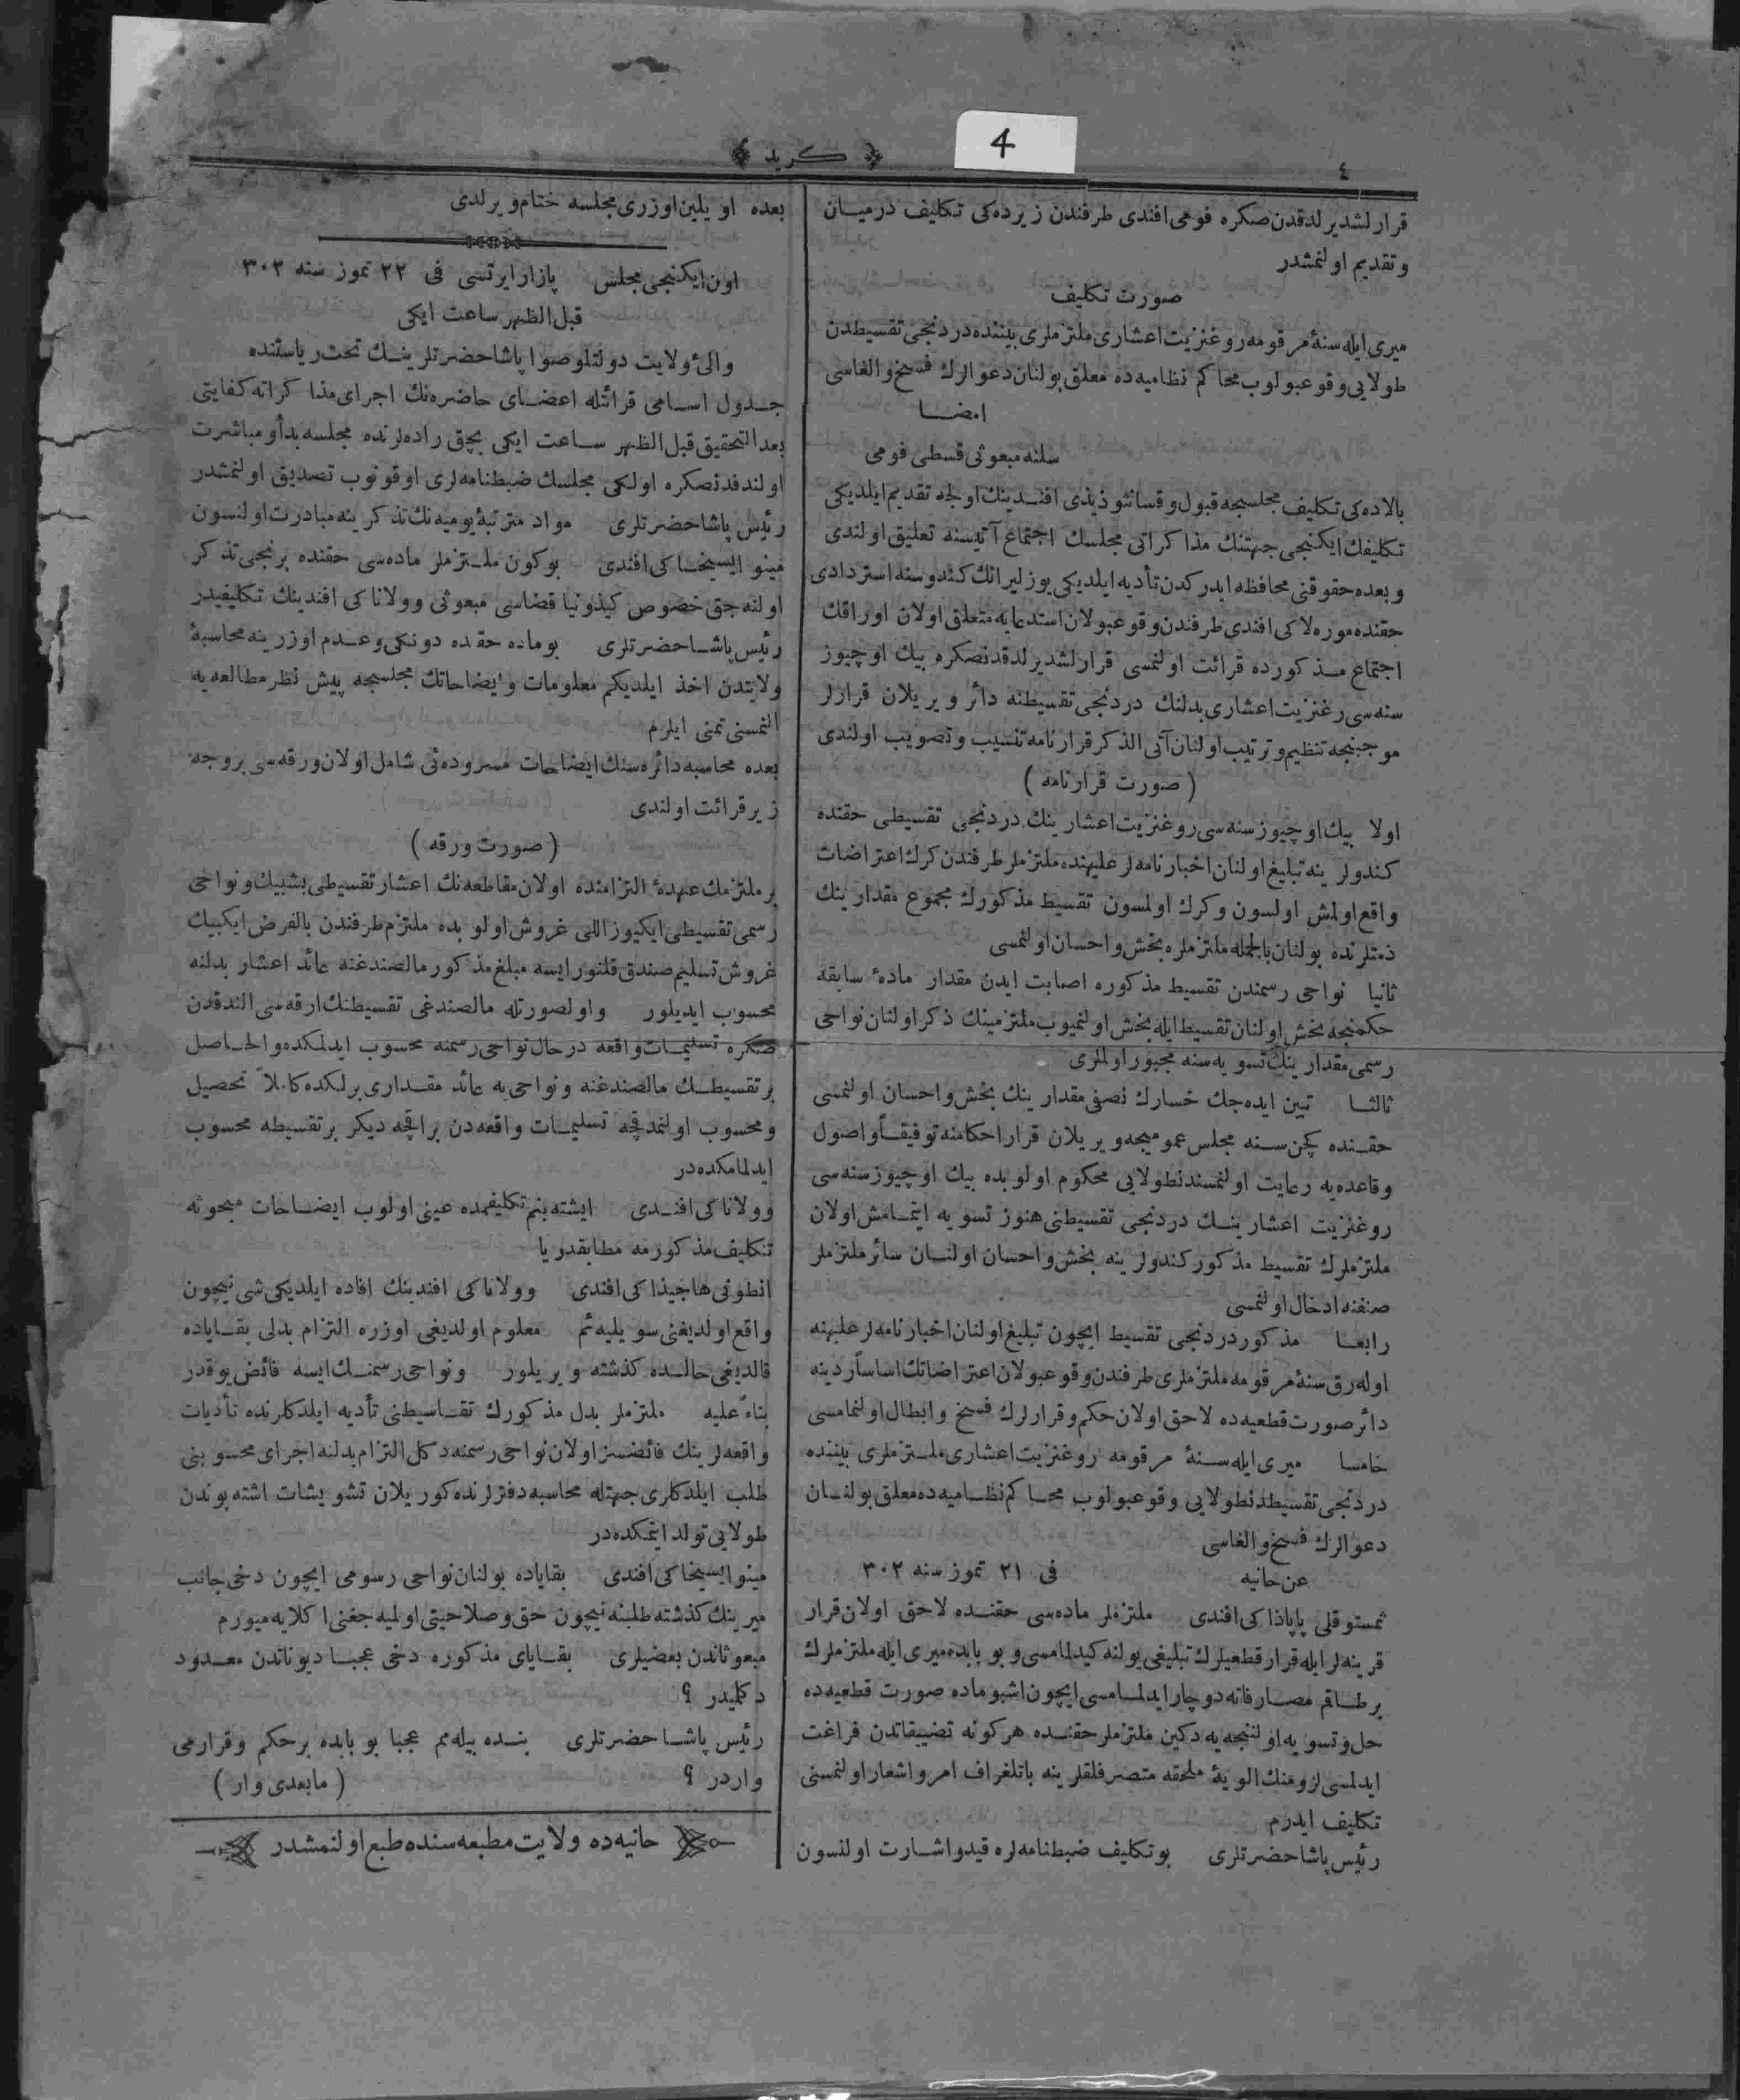 ٤
﴿ كريد ﴾
4
قرارلشديرلدقدن صكره فومى افندى طرفندن زيرده كى تكليف درميان
وتقديم اولنمشدر
صورت تكليف
ميرى ايله سنۀ مرقومه روغنزيت اعشارى ملتزملرى بيننده دردنجى تقسيطدن
طولايى وقوعبولوب محاكم نظاميه ده معلق بولنان دعوالرك فسخ والغاسى
امضا
سلنه مبعوثى قسطى فومى
بالاده كى تكليف مجلسجه قبول و قسانثوذيذى افندينك اولجه تقديم ايلديكى
تكليفك ايكنجى جهتنك مذاكراتى مجلسك اجتماع آتيسنه تعليق اولندى
وبعده حقوقنى محافظه ايدركدن تأديه ايلديكى يوز ليرانك كندوسنه استردادى
حقنده موره لاكى افندى طرفندن وقوعبولان استدعايه متعلق اولان اوراقك
اجتماع مذكورده قرائت اولنمسى قرارلشديرلدقدنصكره بيك اوچيوز
سنه سى رغنزيت اعشارى بدلنك دردنجى تقسيطنه دائر ويريلان قرارلر
موجبنجه تنظيم وترتيب اولنان آتى الذكر قرارنامه تنسيب وتصويب اولندى
( صورت قرارنامه )
اولا بيك اوچيوز سنه سى روغنزيت اعشارينك دردنجى تقسيطى حقنده
كندولرينه تبليغ اولنان اخبارنامه لر عليهنده ملتزملر طرفندن كرك اعتراضات
واقع اولمش اولسون وكرك اولمسون تقسيط مذكورك مجموع مقدارينك
ذمتلرنده بولنان بالجمله ملتزملره بخش و احسان اولنمسى
ثانيا نواحى رسمندن تقسيط مذكوره اصابت ايدن مقدار مادۀ سابقه
حكمنجه بخش اولنان تقسيط ايله بخش اولنميوب ملتزمينك ذكر اولنان نواحى
رسمى مقدارينك تسويه سنه مجبور اولملرى
ثالثا تبين ايده جك خسارك نصفى مقدارينك بخش و احسان اولنمسى
حقنده كچن سنه مجلس عموميجه ويريلان قرار احكامنه توفيقاً واصول
وقاعده يه رعايت اولنمسندنطولايى محكوم اولوبده بيك اوچيوز سنه سى
روغنزيت اعشارينك دردنجى تقسيطنى هنوز تسويه ايتمامش اولان
ملتزملرك تقسيط مذكور كندولرينه بخش و احسان اولنان سائر ملتزملر
صنفنه ادخال اولنمسى
رابعا مذكور دردنجى تقسيط ايچون تبليغ اولنان اخبارنامه لر عليهنه
اوله رق سنۀ مرقومه ملتزملرى طرفندن وقوعبولان اعتراضاتك اساساً ردينه
دائر صورت قطعيه ده لاحق اولان حكم وقرارلرك فسخ وابطال اولنمامسى
خامسا ميرى ايله سنۀ مرقومه روغنزيت اعشارى ملتزملرى بيننده
دردنجى تقسيطدنطولايى وقوعبولوب محاكم نظاميه ده معلق بولنان
دعوالرك فسخ والغاسى
عن حانيه فى ٢١ تموز سنه ٣٠٢
ثمستوقلى پاپاذاكى افندى ملتزملر ماده سى حقنده لاحق اولان قرار
قرينه لر ايله قرار قطعيلرك تبليغى يولنه كيدلمامسى و بو بابده ميرى ايله ملتزملرك
برطاقم مصارفاته دوچار ايدلمامسى ايچون اشبو ماده صورت قطعيه ده
حل و تسويه اولنجه يه دكين ملتزملر حقنده هركونه تضييقاتدن فراغت
ايدلمسى لزومنك الويۀ ملحقه متصرفلقلرينه باتلغراف امر واشعار اولنمسنى
تكليف ايدرم
رئيس پاشا حضرتلرى بو تكليف ضبطنامه لره قيد واشارت اولنسون
بعده اويلين اوزرى مجلسه ختام ويرلدى
اون ايكنجى مجلس پازار ايرتسى فى ٢٢ تموز سنه ٣٠٢
قبل الظهر ساعت ايكى
والئ ولايت دولتلو صوا پاشا حضرتلرينك تحت رياستنده
جدول اسامى قرائتله اعضاى حاضره نك اجراى مذاكراته كفايتى
بعد التحقيق قبل الظهر ساعت ايكى بچق راده لرنده مجلسه بدأ و مباشرت
اولندقدنصكره اولكى مجلسك ضبطنامه لرى اوقونوب تصديق اولنمشدر
رئيس پاشا حضرتلرى مواد مترتبۀ يوميه نك تذكرينه مبادرت اولنسون
مينو ايسيخاكى افندى بوكون ملتزملر ماده سى حقنده برنجى تذكر
اولنه جق خصوص كيذونيا قضاسى مبعوثى وولاناكى افندينك تكليفيدر
رئيس پاشا حضرتلرى بو ماده حقده دونكى وعدم اوزرينه محاسبۀ
ولايتدن اخذ ايلديكم معلومات وايضاحاتك مجلسجه پيش نظر مطالعه يه
النمسنى تمنى ايلرم
بعده محاسبه دائره سنك ايضاحات مسروده ئى شامل اولان ورقه سى بروجه
زير قرائت اولندى
( صورت ورقه )
بر ملتزمك عهدۀ التزامنده اولان مقاطعه نك اعشار تقسيطى بشبيك و نواحى
رسمى تقسيطى ايكيوز اللى غروش اولوبده ملتزم طرفندن بالفرض ايكبيك
غروش تسليم صندق قلنور ايسه مبلغ مذكور مالصندغنه عائد اعشار بدلنه
محسوب ايديلور واولصورتله مالصندغى تقسيطنك ارقه سى الندقدن
صكره تسليمات واقعه درحال نواحى رسمنه محسوب ايدلمكده والحاصل
بر تقسيطك مالصندغنه و نواحى يه عائد مقدارى برلكده كاملاً تحصيل
ومحسوب اولنمدقچه تسليمات واقعه دن براقچه ديكر بر تقسيطه محسوب
ايدلمامكده در
وولاناكى افندى ايشته بنم تكليفمده عينى اولوب ايضاحات مبحوثه
تنكليف مذكورمه مطابقدر يا
انطونى هاجيذاكى افندى وولاناكى افندينك افاده ايلديكى شى نيچون
واقع اولديغنى سويليه ئم معلوم اولديغى اوزره التزام بدلى بقاياده
قالديغى حالده كذشته ويريلور و نواحى رسمنك ايسه فائضى يوقدر
بناءً عليه ملتزملر بدل مذكورك تقاسيطنى تأديه ايلدكلرنده تأديات
واقعه لرينك فائضسز اولان نواحى رسمنه دكل التزام بدلنه اجراى محسوبنى
طلب ايلدكلرى جهتله محاسبه دفترلرنده كوريلان تشويشات اشته بوندن
طولايى تولد ايتمكده در
مينو ايسيخاكى افندى بقاياده بولنان نواحى رسومى ايچون دخى جانب
ميرينك كذشته طلبنه نيچون حق و صلاحيتى اوليه جغنى اكلايه ميورم
مبعوثاندن بعضيلرى بقاياى مذكوره دخى عجبا ديوناتدن معدود
دكليدر ؟
رئيس پاشا حضرتلرى بنده بيله مم عجبا بو بابده بر حكم و قرارمى
واردر ؟ ( مابعدى وار )
حانيه ده ولايت مطبعه سنده طبع اولنمشدر